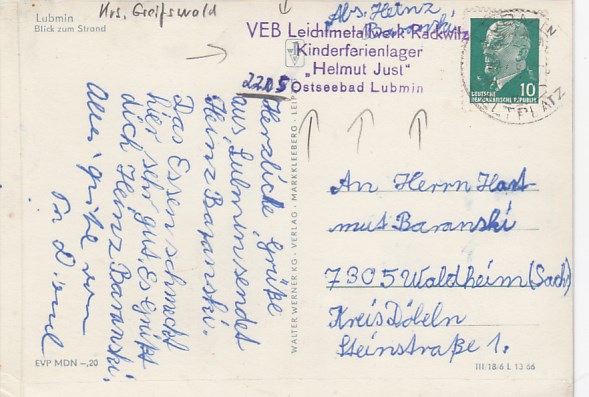 Lubmin
Blick zum Strand
Krs. Greifswald
Abs. Heinz
Baranski
VEB Leichtmetallwerk Rackwitz
Kinderferienlager
„Helmut Just"
Ostseebad Lubmin
2205
10
DEUTSCHE
DEMOKRATISCHE REPUBLIK
Herzliche Grüße
aus Lubmin sendet
Heinz Baranski.
Das Essen schmeckt
hier sehr gut. Es Grüßt
dich Heinz Baranski.
Alles gute von
WALTER WERNER KG · VERLAG · MARKKLEEBERG
An Herrn Hart-
mut Baranski
7305 Waldheim (Sach)
Kreis Döbeln
Steinstraße 1.
EVP MDN –,20
III/18/6 L 13 66